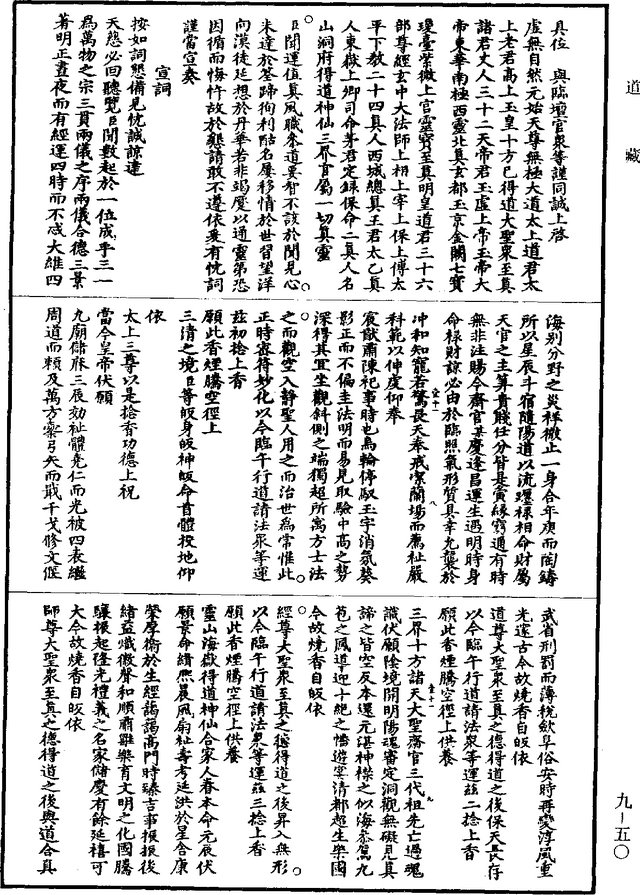 道藏
具位　與臨壇官衆等謹同誠上啓
虛無自然元始天尊無極大道太上道君太
上老君高上玉皇十方已得道大聖衆至真
諸君丈人三十二天帝君玉虛上帝玉帝大
帝東華南極西靈北真玄都玉京金闕七寶
瓊臺紫微上宮靈寶至真明皇道君三十六
部尊經玄中大法師上相上宰上保上傅太
平下教二十四真人西城總真王君太乙真
人東嶽上卿司命茅君定録保命二真人名
山洞府得道神仙三界官屬一切真靈
臣聞運值真風職叅道要智不該於聞見心
未達於筌蹄徇利酤名屢移情於世習望洋
向漢徒延想於丹華若非竭慶以通靈第恐
因循而悔忤故於懇請敢不遵依爰有忱詞
謹當宣奏
宣詞
按如詞懇備見忱誠諒達
天慈必回聽覽臣聞數起於一位成乎三一
爲萬物之宗三貫兩儀之序兩儀合德三景
著明正晝夜而有經運四時而不忒大維四
海別分野之災祥微止一身合年庚而陶鑄
所以星辰斗宿隨陽道以流運禄相命財屬
天官之主筭貴賤任分皆是寅緣窮通有時
無非注賜今齋官某慶逢昌運生遇明時身
命禄財諒必由於臨照氣形質具幸允襲於
冲和知寵若驚長天奉戒潔蘭場而薦祉嚴
科範以伸虔仰奉
宸猷肅陳祀事時也烏輪停馭玉宇消氛葵
影正而不偏圭法明而易見取驗中高之勢
深得其宜坐觀斜側之端獨超所萬方士法
之而觀空入静聖人用之而治世爲常惟此
正時審符妙化以今臨午行道請法衆等運
兹初捻上香
願此香煙騰空徑上
三清之境臣等皈身皈神皈命首體投地仰
依
太上三尊以是捻香功德上祝
當今皇帝伏願
九廟儲庥三辰効祉體堯仁而光被四表繼
周道而賴及萬方櫜弓矢而戢干戈修文偃
武省刑罰而薄稅歛阜俗安時再變淳風重
光邃古今故燒香自皈依
道尊大聖衆至真之德得道之後保天長存
以今臨午行道請法衆等運兹二捻上香
願此香煙騰空徑上供養
三界十方諸天大聖齋官三代祖先亡過魂
識伏願陰境開明陽魂審定洞觀無礙見真
諦之皆空反本還元湛神襟之似海忝駕九
苞之鳳導迎十絶之幡遊宴清都超生樂國
今故燒香自皈依
經尊大聖衆至真之德得道之後昇入無形
以今臨午行道請法衆等運兹三捻上香
願此香煙騰空徑上供養
靈山海嶽得道神仙合家人眷本命元辰伏
願景命緝熙晨風扇祉壽考延洪於星舍康
榮摩衛於生經藹藹高門時臻吉事振振後
緒益熾徽聲和順肅雝樂育文明之化國騰
驤振起隆光禮義之名家儲慶有餘延禧可
大今故燒香自皈依
師尊大聖衆至真之德得道之後與道合真
九－五〇